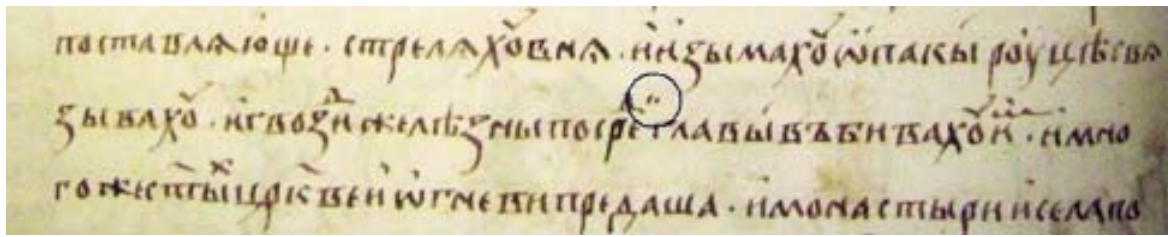 поставлѧюще · стрелѧхоⷹ внѧ · и иꙁымахоⷹ ѡпакы роуцѣ свѧ
ꙁывахоⷹ · и гвоꙁⷣи желѣꙁны посреⷣ главы въбивахоⷹ и҆ · и мно
го же ст҃ыⷯ црк҃веи ѡгневи предаша · и монастыри и села по